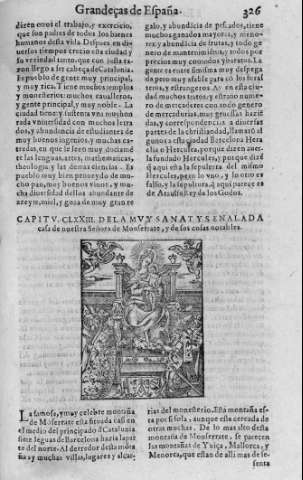 Grandeças de España. 326
diren con el trabajo, y exercicio,
que son padres de todos los bienes
humanos desta vida. Despues en di-
uersos tiempos crecio esta ciudad y
su vezindad tanto, que con justa ra-
zon llego a ser cabeça de Cataluña.
Es pueblo de gente muy principal,
y muy rica. Tiene muchos templos
y monesterios: muchos caualleros,
y gente principal, y muy noble. La
ciudad tiene y sustenta vna muy hon
rada vniuersidad con muchos letra
dos, y abundancia de estudiantes de
muy buenos ingenios, y muchas ca-
tredas, en que se leen muy doctamē
te las lenguas, artes, mathematicas,
theologia y las demas ciencias. Es
pueblo muy bien proueydo de mu-
cho pan, muy buenos vinos, y mu-
cha diuersidad dellos abundante de
azeyte, miel, y goza de muy grande
regalo, y abundācia de pescado, tiene
muchos ganados mayores, y meno-
res, y abundācia de frutas, y todo ge
nero de mantenimiētos, y todo por
precios muy comodos y baratos. La
gente es entre si misma muy despega
da pero muy afable para cō los foras
teros, y estrangeros. Ay en esta ciu-
dad muchos tratos, y estraño nume-
ro de mercaderes con todo genero
de mercaderias, muy gruessas hazié
das, y correspondencia a diuersas
partes de la christiandad, llamarō al
gunos a esta ciudad Barcelona Hera
clia o Herculea, porque dizen auer
la fundado Hercules, y porque dizē
q̄ aqui esta la sepultura del mismo
Hercules, pero lo vno, y lo otro es
falso, y la sepultura q̄ aqui parece es
de Ataulfo Rey de los Godos.
CAPITV. CLXXIII. DE LA MVY SANAT Y SEÑALADA
casa de nuestra Señora de Monserrate, y de sus cosas notables.
La famosa, y muy celebre montaña
de Mōserrate esta situada casi en
el medio del principado d̄ Cataluña
siete leguas de Barcelona hazia la par
te del norte. Al derredor desta mōta
ña ay muchas villas, lugares, y alcar-
rias del monesterio. Esta montaña es-
ta por si sola, aunque esta cercada de
otras muchas. De lo mas alto desta
montaña de Monserrate, se parecen
las montañas de Yuiça, Mallorca, y
Menorca, que estan de alli mas de se-
senta